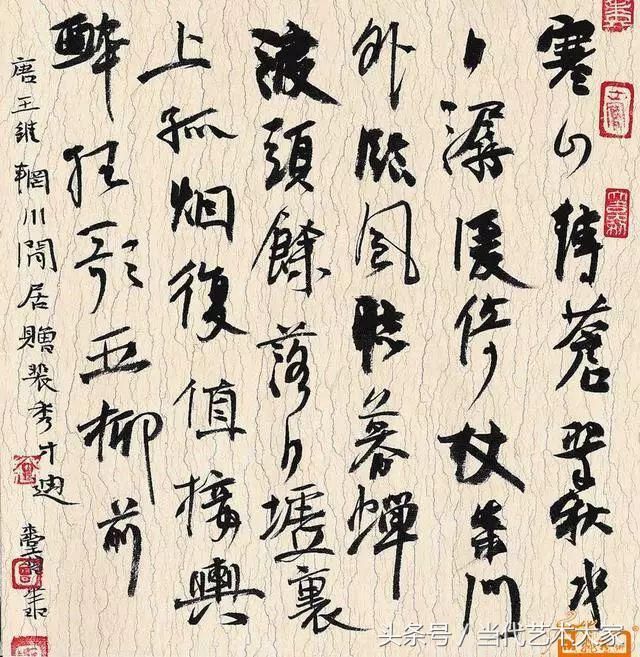 寒山轉蒼翠秋水
日潺湲倚杖柴门
外臨風聽暮蟬
渡頭餘落日墟裏
上孤烟復值接輿
醉狂歌五柳前
唐王維輞川閒居贈裴秀才迪
头条号 / 当代艺术大家